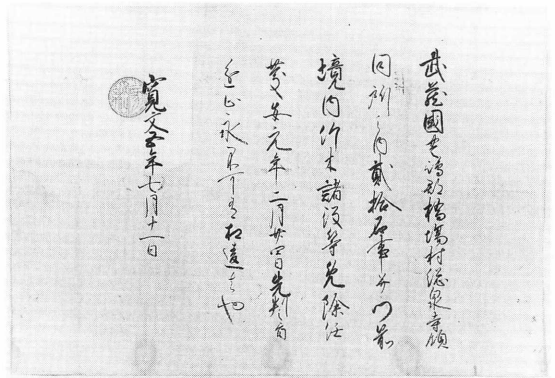 武蔵國豊嶋郡橋場村総泉寺領
同所之内貳拾石事并門前
境内竹木諸役等免除任
慶安元年二月廿四日先判之旨
永不可有相違者也
寛文五年七月十一日